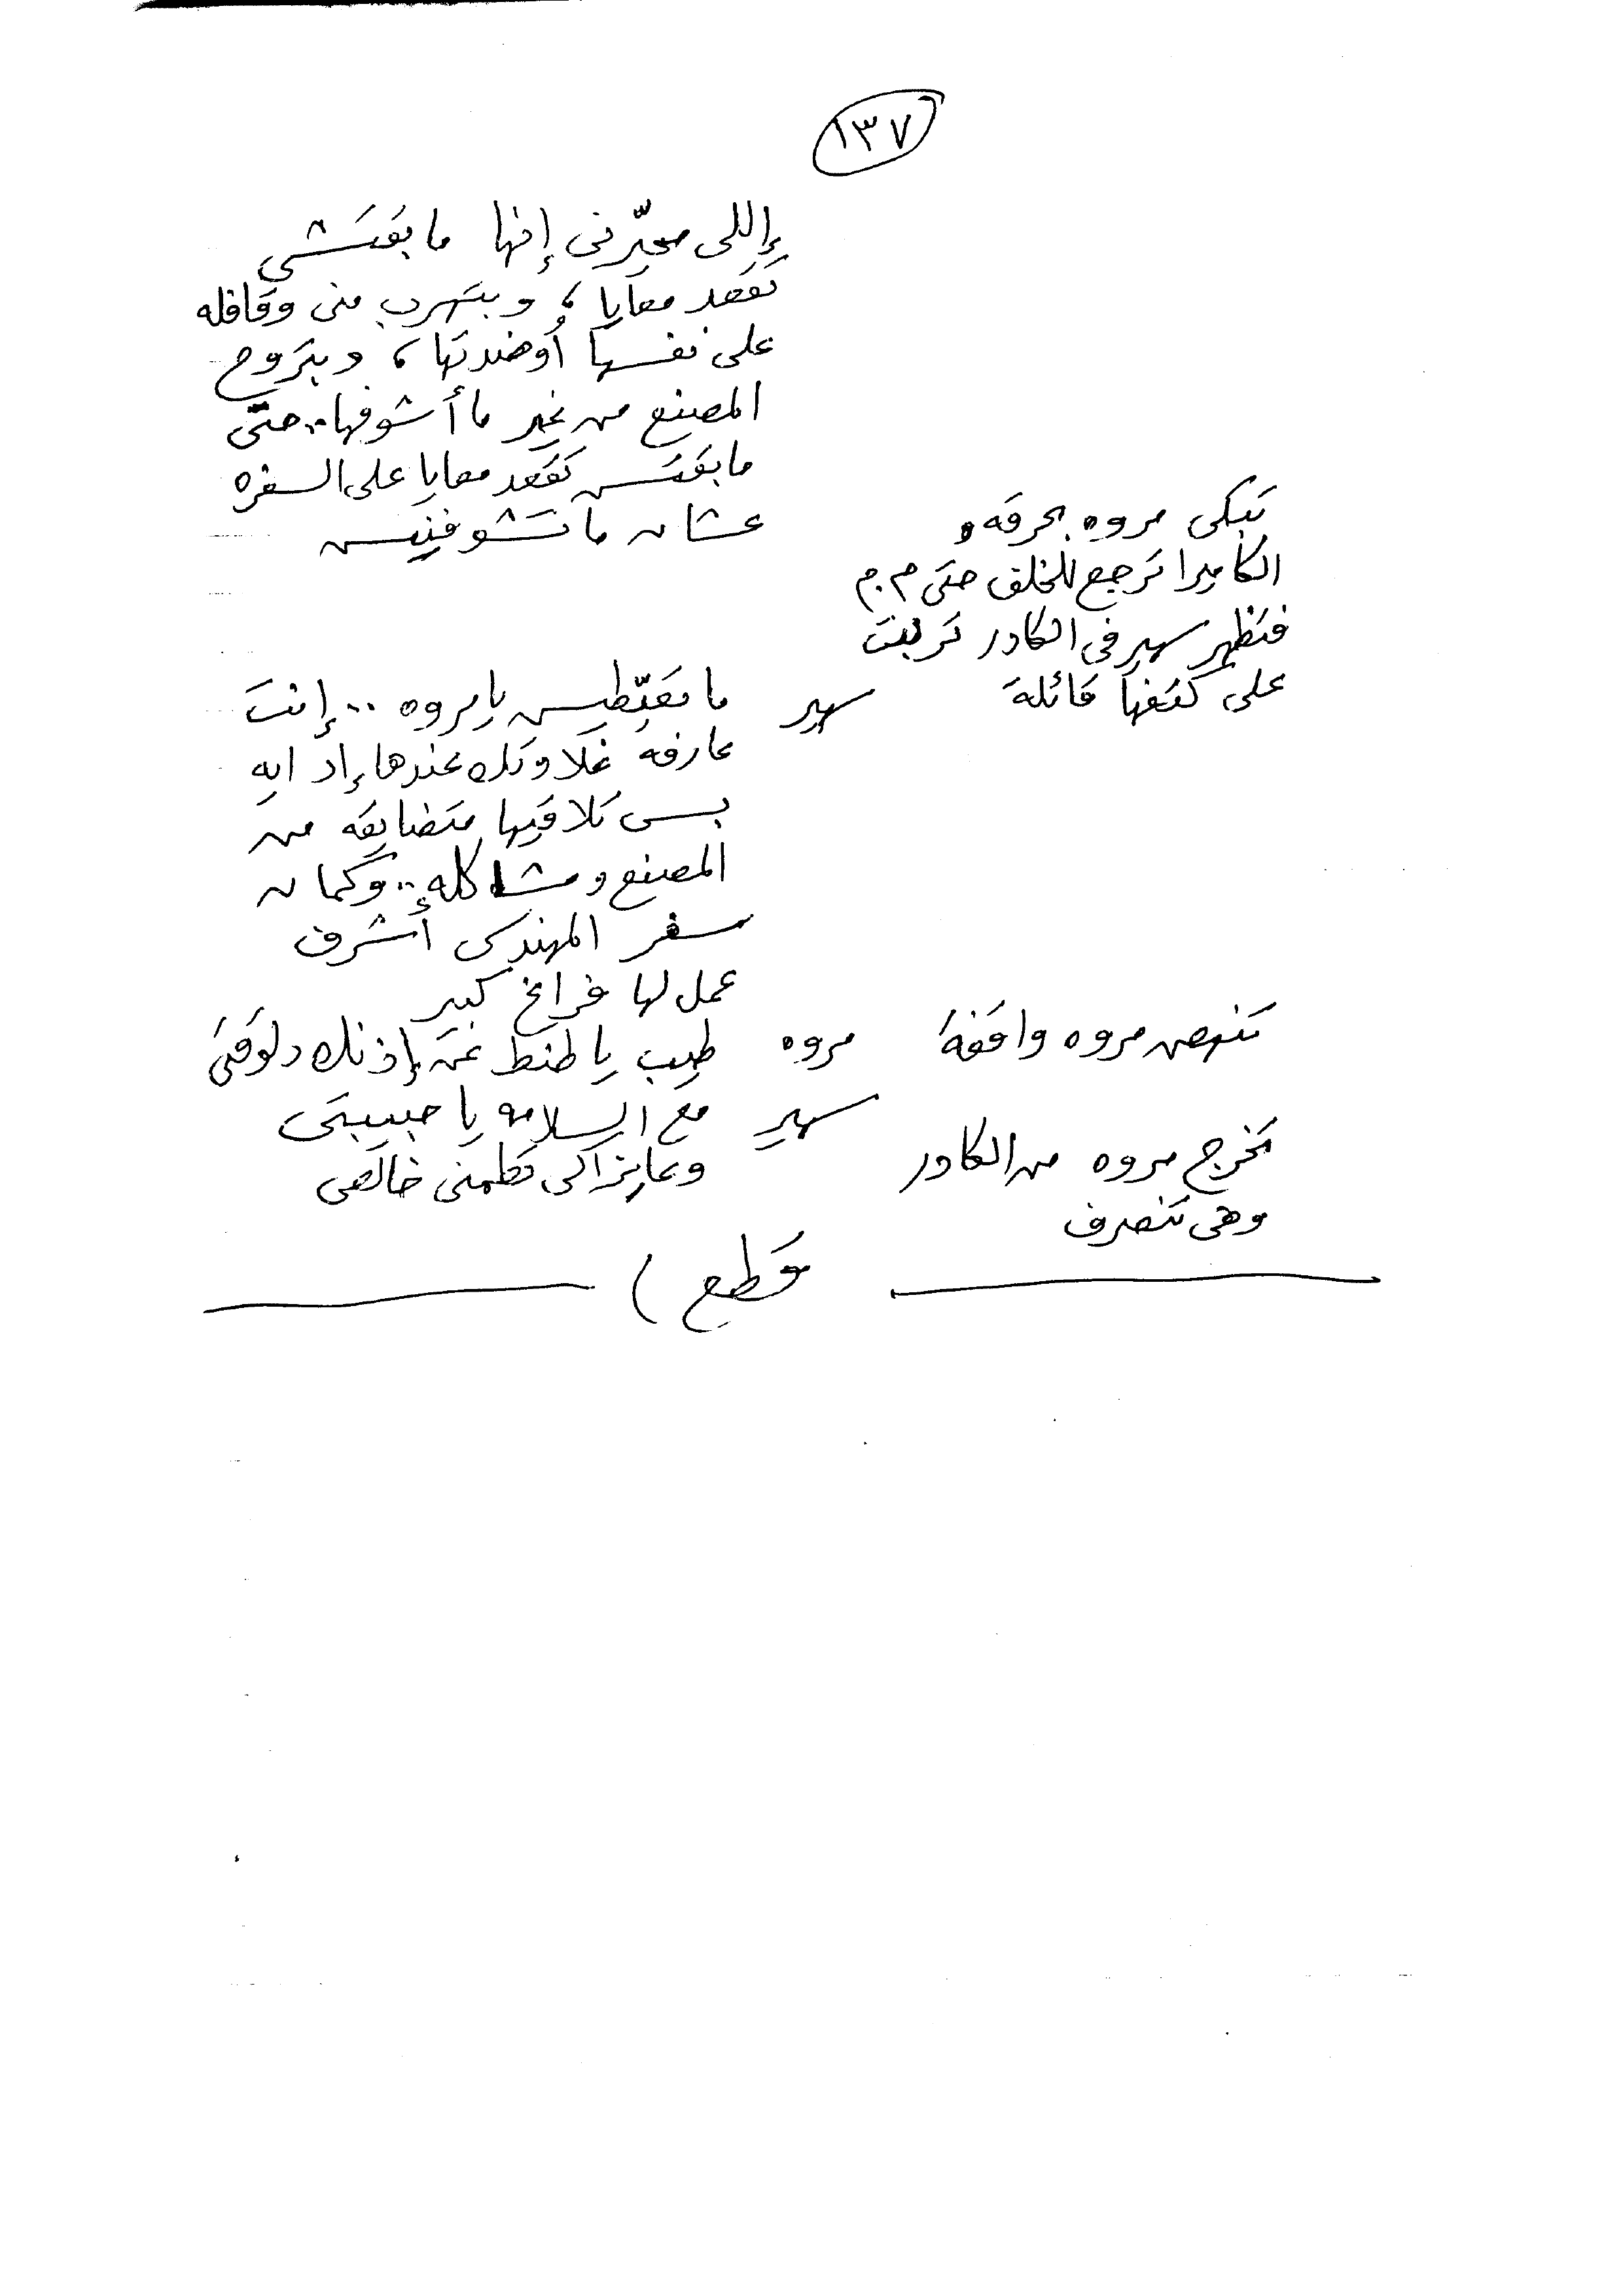 ١٣٧
إللى محيّرنى إنها ما بقتشي
تقعد معايا ، وبتهرب منى وقافله
على نفسها أوضتها ، وبتروح
المصنع من غير ما أشوفها .. حتى
ما بقتش تقعد معايا على السفره
عشان ما تشوفنيش
تبكى مروه بحرقه
الكاميرا ترجع للخلف حتى م.م
فتظهر سهير فى الكادر تربت
على كتفها قائلة
سهير ما تعيّطيش يا مروه .. إنت
عارفه غلاوتك عندها إد ايه
بس تلاقيها متضايقه من
المصنع ومشاكله .. وكمان
سفر المهندس أشرف
عمل لها فراغ كبير
تنهض مروه واقفة مروه طيب يا طنط عن إذنك دلوقتى
سهير مع السلامه يا حبيبتى
تخرج مروه من الكادر وعايزاكى تطمنى خالص
وهى تنصرف
قطع )